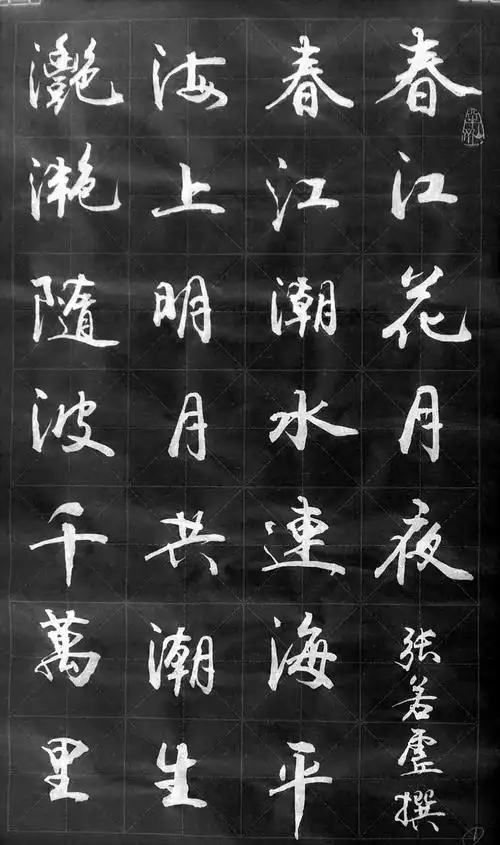 春江花月夜 张若虚撰
春江潮水連海平
海上明月共潮生
灩灩隨波千萬里